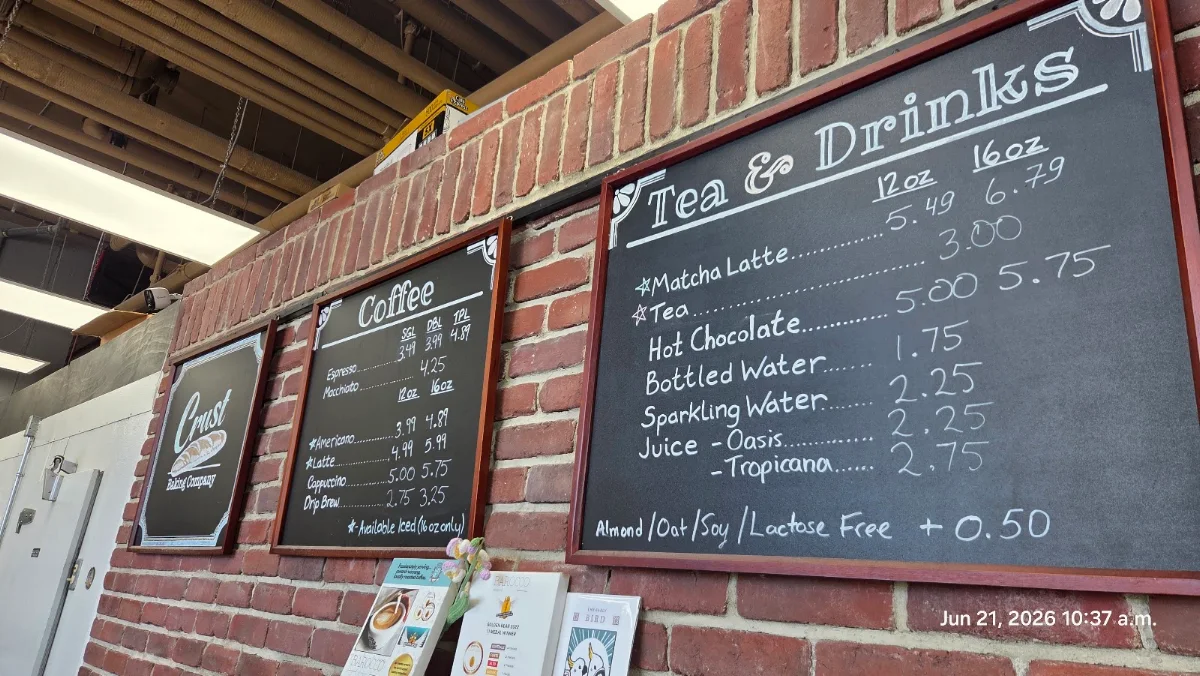 Crust
Baking Company
Coffee
SGL DBL TPL
Espresso 3.49 3.99 4.89
Macchiato 4.25
12oz 16oz
☆Americano 3.99 4.89
☆Latte 4.99 5.99
Cappuccino 5.00 5.75
Drip Brew 2.75 3.25
☆-Available Iced (16oz only)
Tea & Drinks
12oz 16oz
☆Matcha Latte 5.49 6.79
☆Tea 3.00
Hot Chocolate 5.00 5.75
Bottled Water 1.75
Sparkling Water 2.25
Juice -Oasis 2.25
-Tropicana 2.75
Almond/Oat/Soy/Lactose Free +0.50
BIRD
Jun 21, 2026 10:37 a.m.